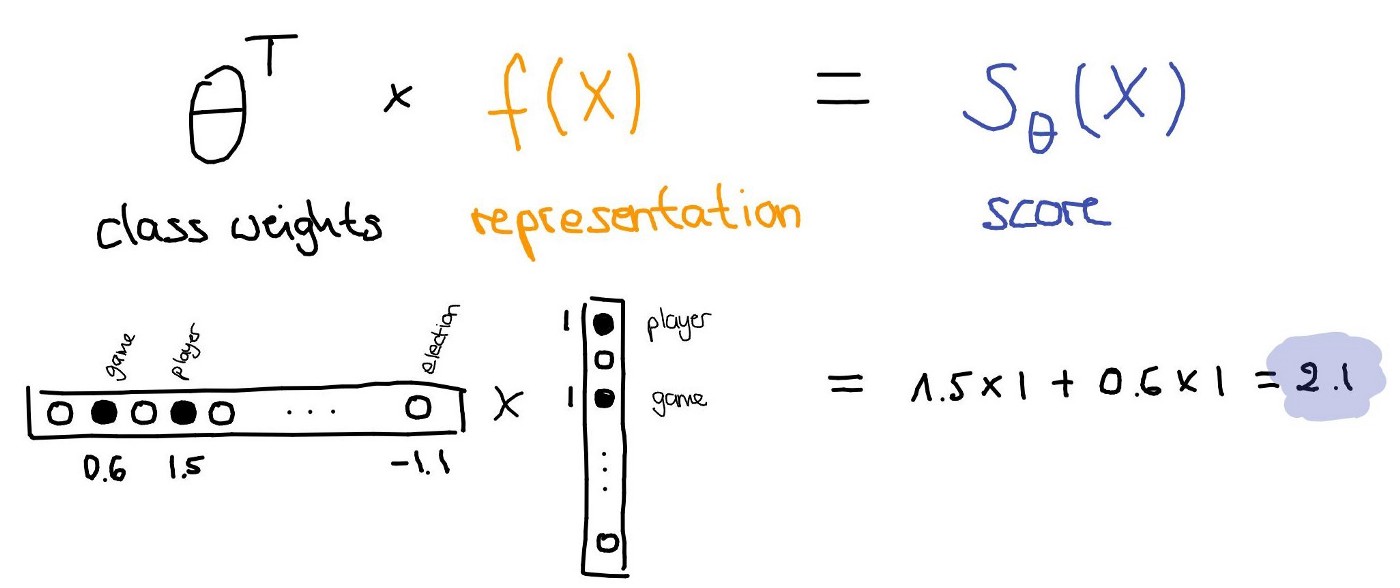 θᵀ × f(x) = S_θ(x)
class weights representation score
game player election
1 player
1 game
× = 1.5 × 1 + 0.6 × 1 = 2.1
...
0.6 1.5 -1.1